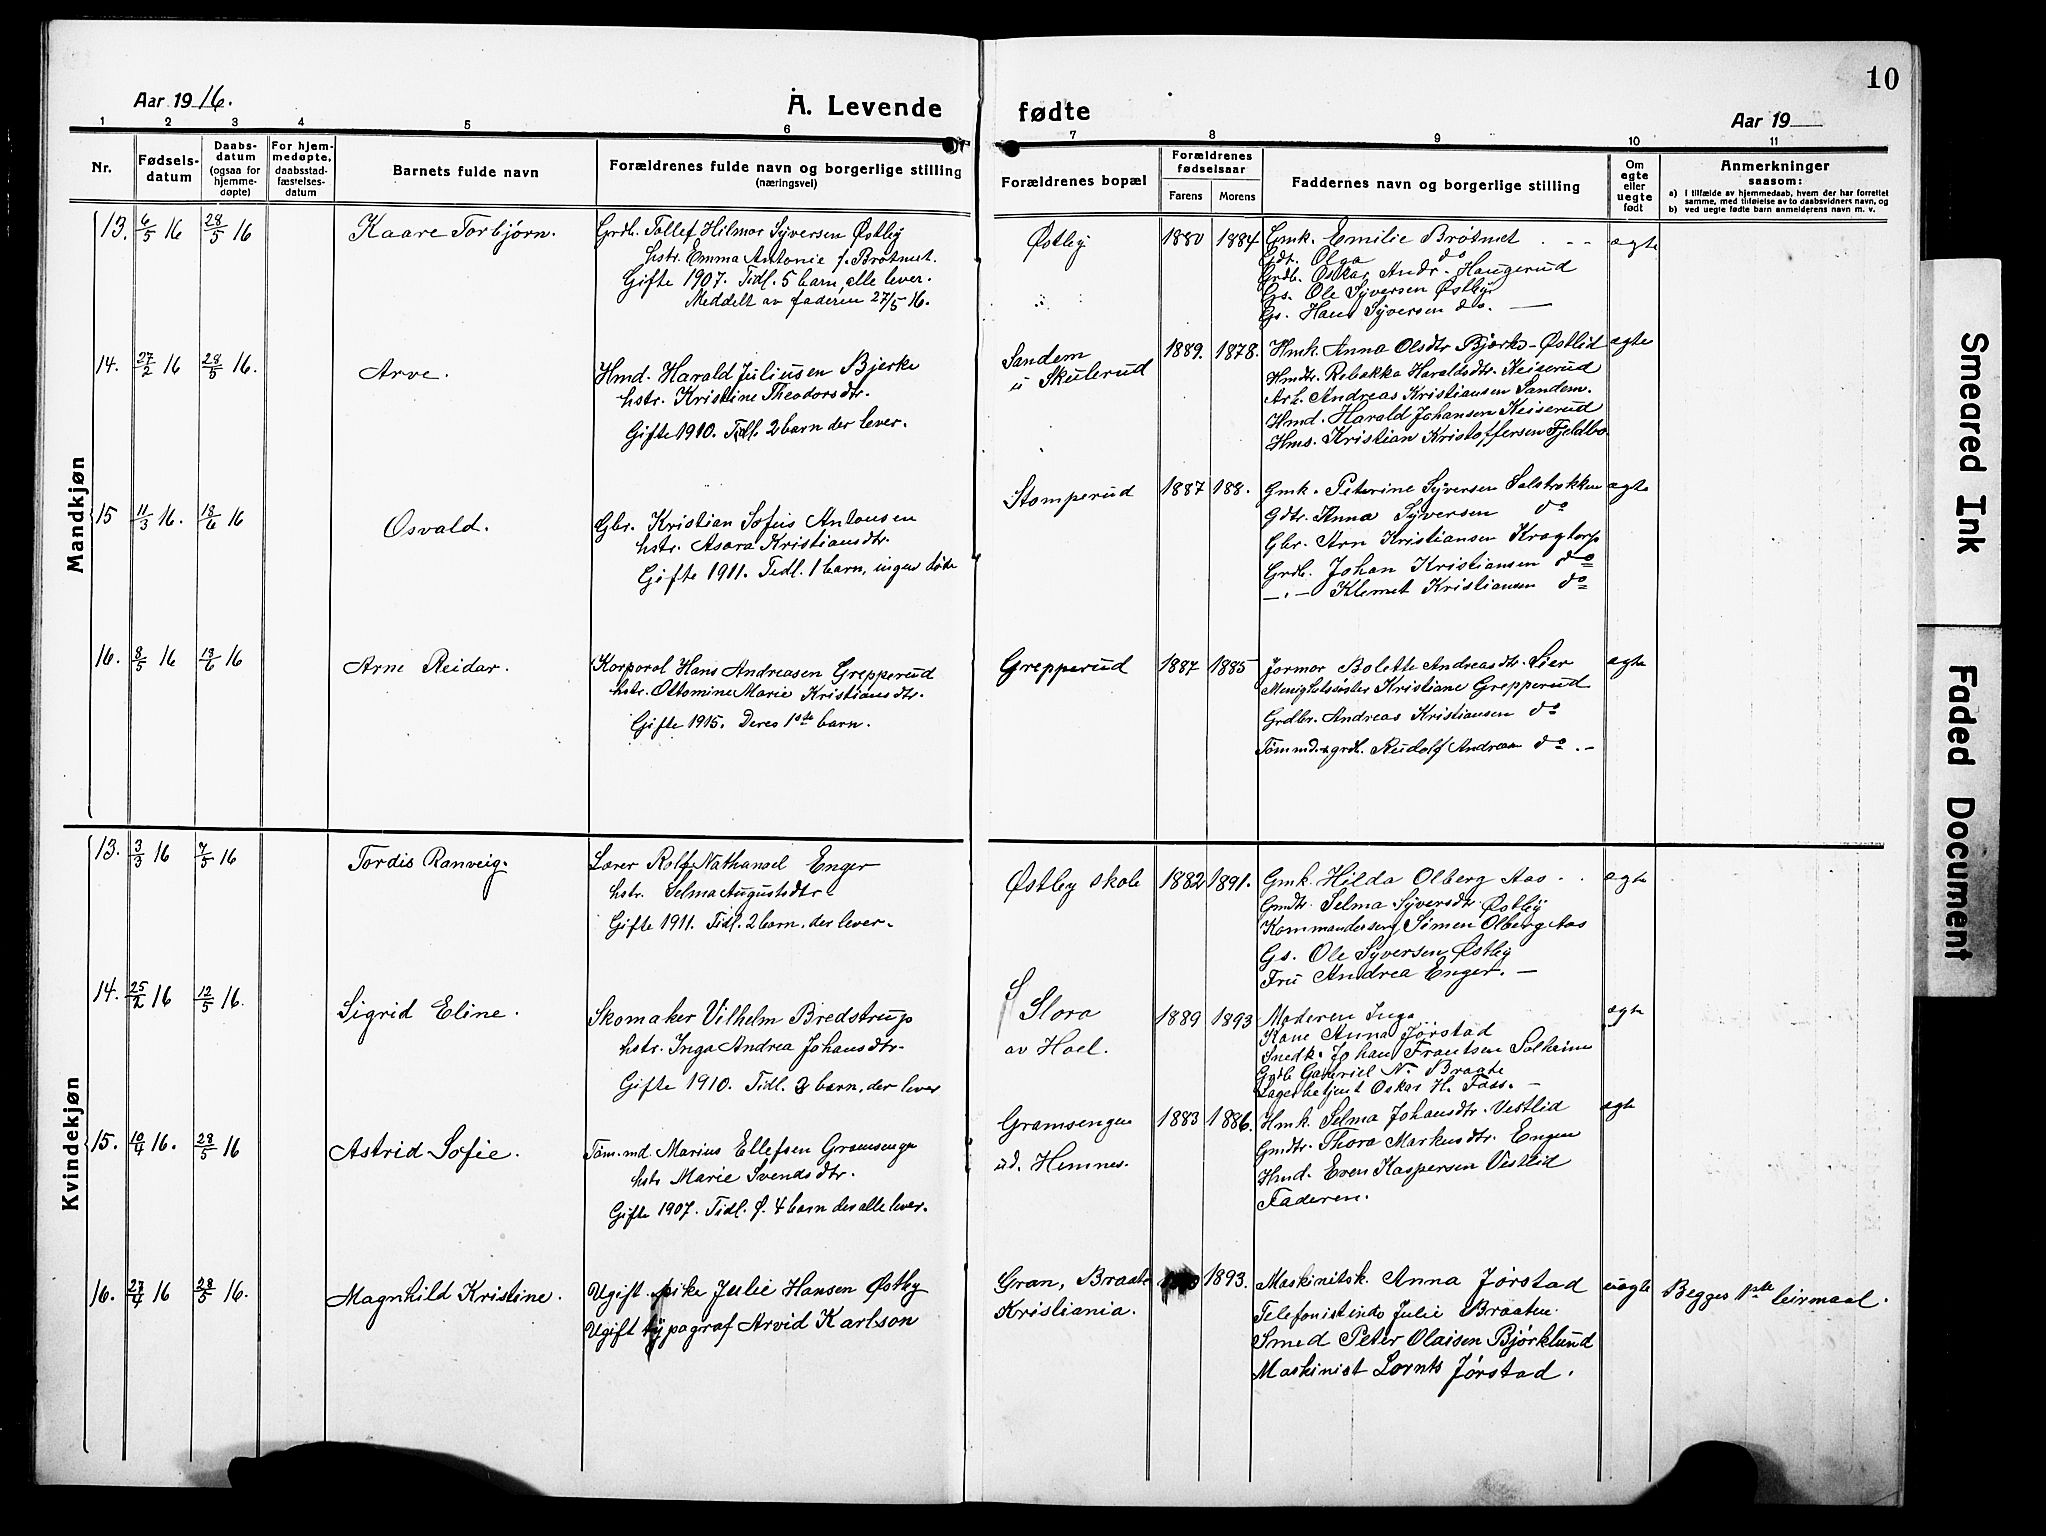 10
Aar 19 16.
A. Levende
fødte
Aar 19
1 2 3 4 5 6 7 8 9 10 11
Nr.
Fødsels-
datum
Daabs-
datum
(ogsaa for
hjemme-
døpte)
For hjem-
medøpte,
daabsstad-
fæstelses-
datum
Barnets fulde navn
Forældrenes fulde navn og borgerlige stilling
(næringsvei)
Forældrenes bopæl
Forældrenes
fødselsaar
Farens Morens
Faddernes navn og borgerlige stilling
Om
ægte
eller
uegte
født
Anmerkninger
saasom:
a) I tilfælde av hjemmedaab, hvem der har forrettet
samme, med tilføielse av to daabsvidners navn, og
b) ved uegte fødte barn anmelderens navn m. v.
Mandkjøn
13. 6/5 16 28/5 16
Kaare Torbjørn.
Grdb. Tollef Hilmar Syversen Østby
hstr. Emma Antonie f. Brøtmet.
Gifte 1907. Tidl. 5 barn, alle lever.
Meddelt av faderen 27/5 16.
Østby
1880 1884
Gmk. Emilie Brøtmet
Gdt. Olga do
Grdb. Oskar Andr. Haugerud
Gs. Ole Syversen Østby
Gs. Hans Syversen do. —
ægte
14. 27/2 16 28/5 16.
Arve.
Hmd. Harald Juliusen Bjerke
hstr. Kristine Theodorsdtr.
Gifte 1910. Tidl. 2 barn der lever.
Sandem
u Skulerud
1889. 1878.
Hmk. Anna Olsdtr Bjerke-Østlid
Hmdtr. Rebekka Haraldsdtr. Keiserud
Arb. Andreas Kristiansen Sandem.
Hmd. Harald Johansen Keiserud
Hms. Kristian Kristoffersen Fjeldbo.
ægte
15 11/3 16. 18/6 16
Osvald.
Gbr. Kristian Sofus Antonsen
hstr. Asora Kristiansdtr.
Gifte 1911. Tidl. 1 barn, ingen døde
Stomperud
1887 188.
Gmk. Peterine Syversen
Gdtr. Anna Syversen do
Gbr. Arn Kristiansen Kragtorp
Grdb. Johan Kristiansen do
—.— Klemet Kristiansen do
ægte
16. 8/5 16 18/6 16
Arne Reidar.
Korporal Hans Andreasen Grepperud
hstr. Ottomine Marie Kristiansdtr.
Gifte 1915. Deres 1ste barn.
Grepperud
1887 1885
Jormor Bolette Andreasdtr. Lier
Menighetssøster Kristiane Grepperud
Grdbr. Andreas Kristiansen do
Tømmd. & grdb. Rudolf Andreas do. —
ægte
Kvindekjøn
13. 3/3 16 7/5 16
Tordis Ranveig.
Lærer Rolf Nathanael Enger
hstr. Selma Augustsdtr.
Gifte 1911. Tidl. 2 barn, der lever.
Østby skole
1882 1891.
Gmk. Hilda Olberg Aas
Gmdtr. Selma Syversdtr Østby
Kommanderserg. Simen Olberg Aas
Gs. Ole Syversen Østby
Fru Andrea Enger. —
ægte
14. 25/2 16 12/5 16.
Sigrid Eline.
Skomaker Vilhelm Bredstrup
hstr. Inga Andrea Johansdtr.
Gifte 1910. Tidl. 2 barn, der lever
Slora
av Hoel.
1889 1893
Moderen Inga
Kone Anna Jørstad
Snedk. Johan Frantsen Solheim
Grdb Gabriel N. Braate
Lagerbetjent Oskar H. Foss. —
ægte
15. 10/4 16. 28/5 16
Astrid Sofie.
Tøm.md Marius Ellefsen Gramsengen
hstr Marie Svendsdtr.
Gifte 1907. Tidl. f. 4 barn der alle lever.
Gramsengen
u. Hemnes.
1883 1886.
Hmk. Selma Johansdtr. Vestlid
Gmdtr. Thora Markusdtr. Engen
Hmd. Even Kaspersen Vestlid
Faderen.
ægte
16. 27/4 16 28/5 16.
Magnhild Kristine.
Ugift pike Julie Hansen Østby
Ugift typograf Arvid Karlson
Gran, Braate
Kristiania.
1893.
Maskinistk. Anna Jørstad
Telefonistinde Julie Braaten.
Smed Peter Olaisen Bjørklund
Maskinist Lornts Jørstad.
uægte
Begges 1ste leirmaal.
Smeared Ink
Faded Document